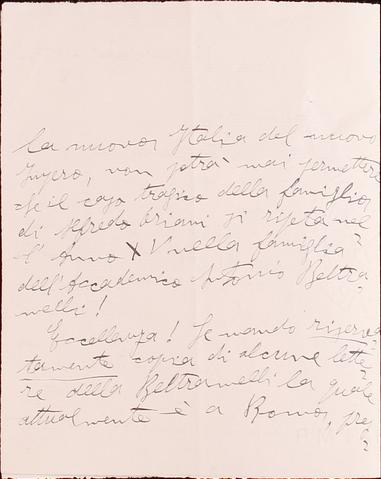 la nuova Italia del nuovo
Impero, non potrà mai permettere
che il caso tragico della famiglia
di Alfredo Oriani si ripeta nel
l'Anno XV nella famiglia
dell'Accademico Antonio Beltra-
melli!
Eccellenza! Le mando riserva-
tamente copia di alcune lette-
re della Beltramelli la quale
attualmente è a Roma, pre-